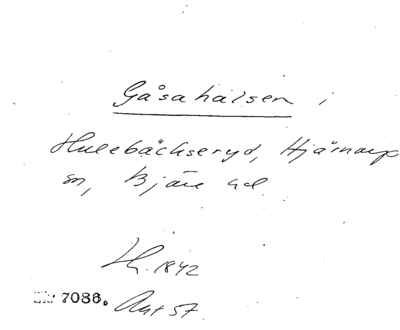 Gåsahalsen i
Hulebäckseryd, Hjärnarp
sn, Bjäre hd
Lh. 1842
7086. Ant 57.